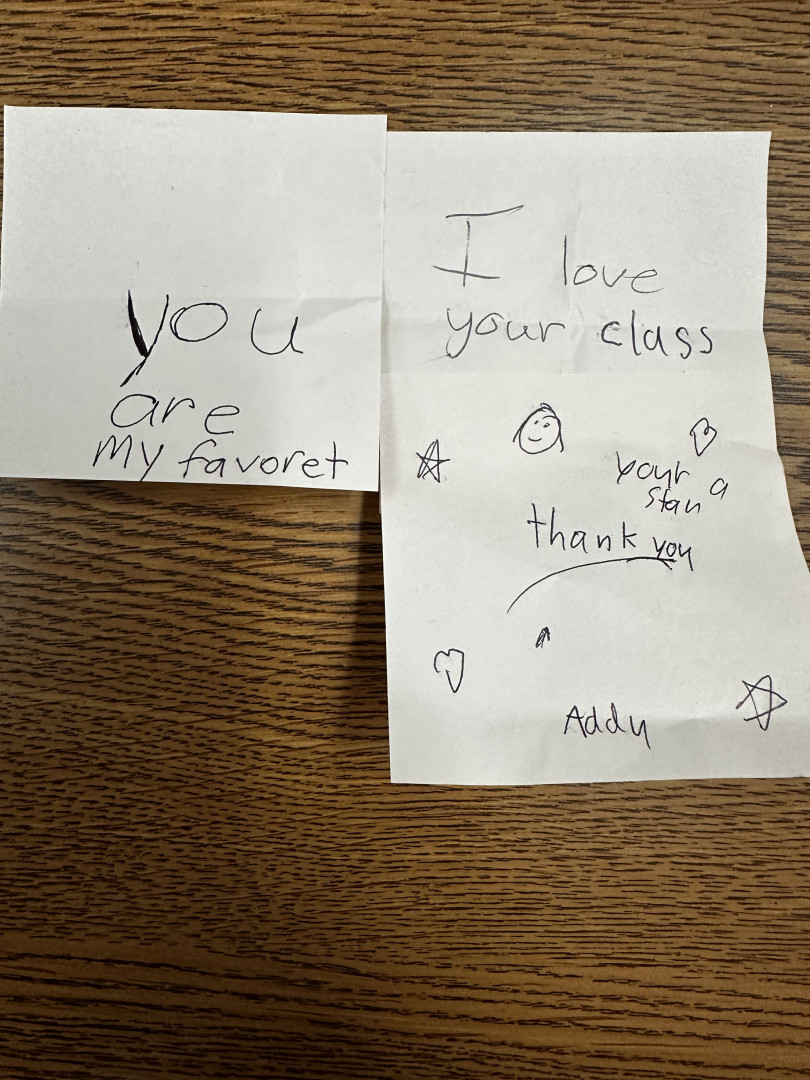 you
are
my favoret
I love
your class
your a
stan
thank you
Addy